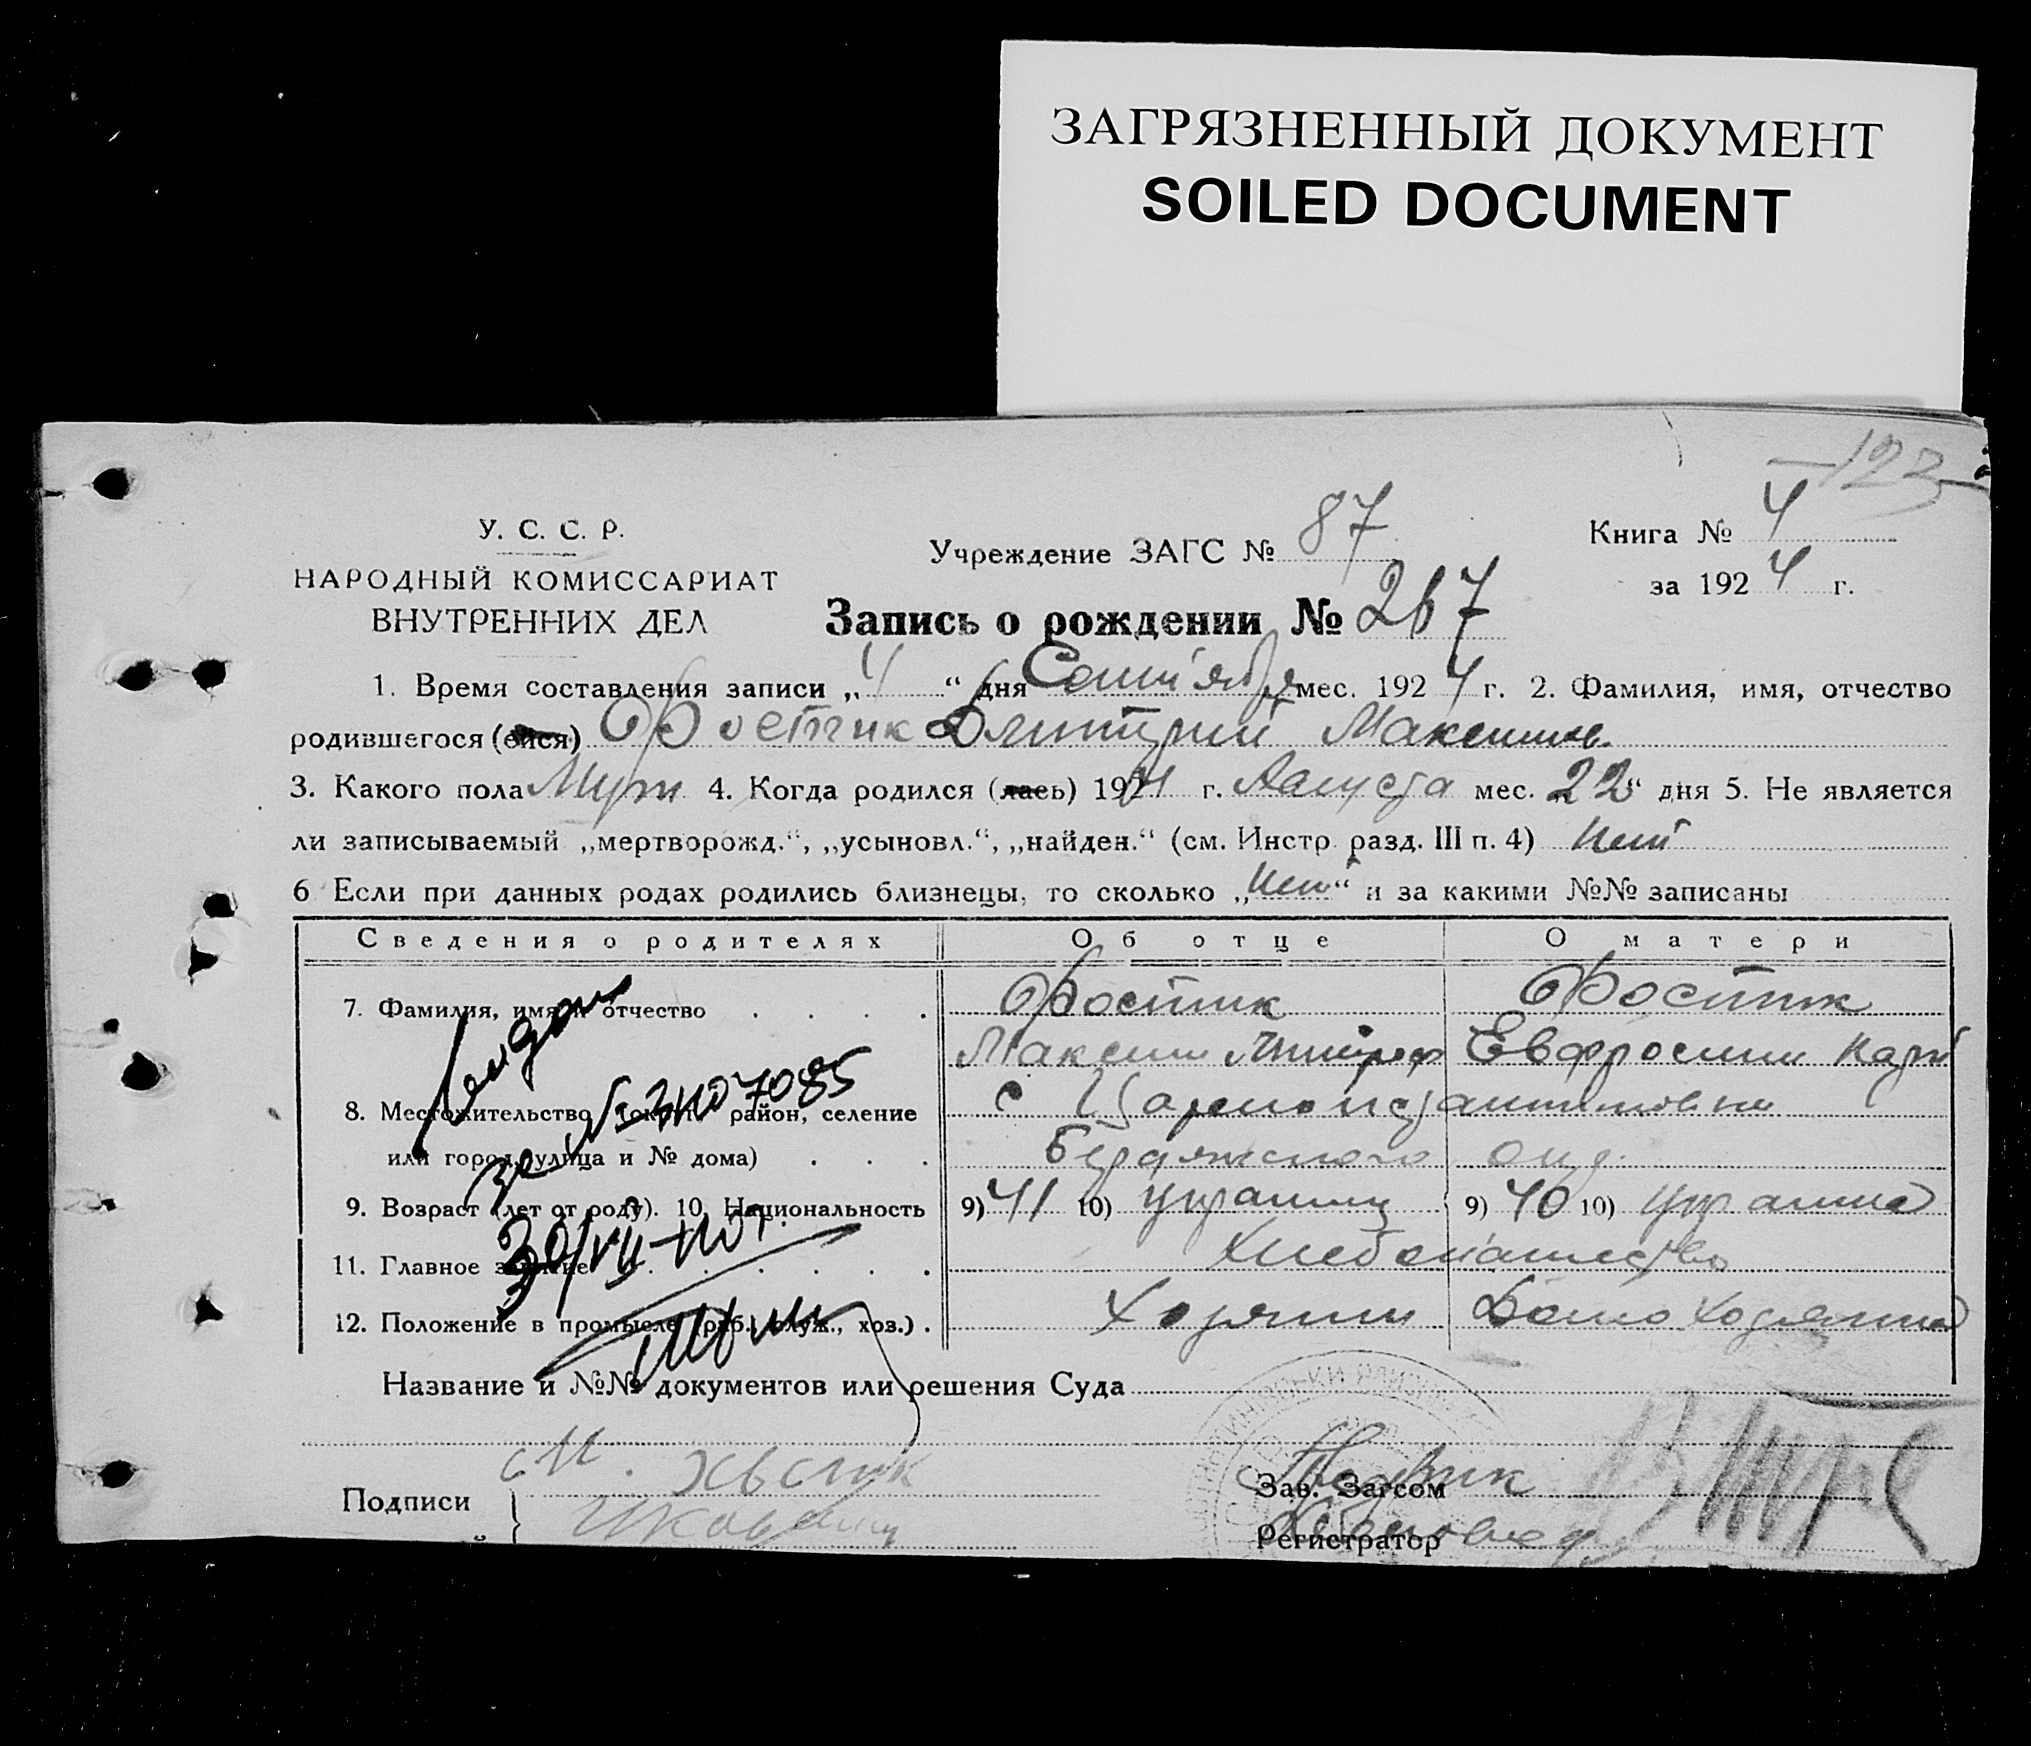 ЗАГРЯЗНЕННЫЙ ДОКУМЕНТ
SOILED DOCUMENT
123
У. С. С. Р.
НАРОДНЫЙ КОМИССАРИАТ
ВНУТРЕННИХ ДЕЛ
Учреждение ЗАГС № 87
Книга № 4
за 1924 г.
Запись о рождении № 267
1. Время составления записи „4“ дня Сентября мес. 1924 г. 2. Фамилия, имя, отчество
родившегося (ейся) Фостик Дмитрий Максимов.
3. Какого пола Муж 4. Когда родился (лась) 1924 г. Августа мес. „22“ дня 5. Не является
ли записываемый „мертворожд.“, „усыновл.“, „найден.“ (см. Инстр. разд. III п. 4) Нет
6 Если при данных родах родились близнецы, то сколько „Нет“ и за какими №№ записаны
Сведения о родителях Об отце О матери
7. Фамилия, имя и отчество Фостик Фостик
Максим Евфросиния
8. Местожительство (округ, район, селение с Цареконстантиновка
или город, улица и № дома) Бердянского окр.
9. Возраст (лет от роду). 10. Национальность 9) 41 10) украинец 9) 40 10) украинка
11. Главное занятие Хлебопашество
12. Положение в промысле (раб., служ., хоз.) Хозяин Домохозяйка
Название и №№ документов или решения Суда
Подписи
Зав. Загсом
Регистратор